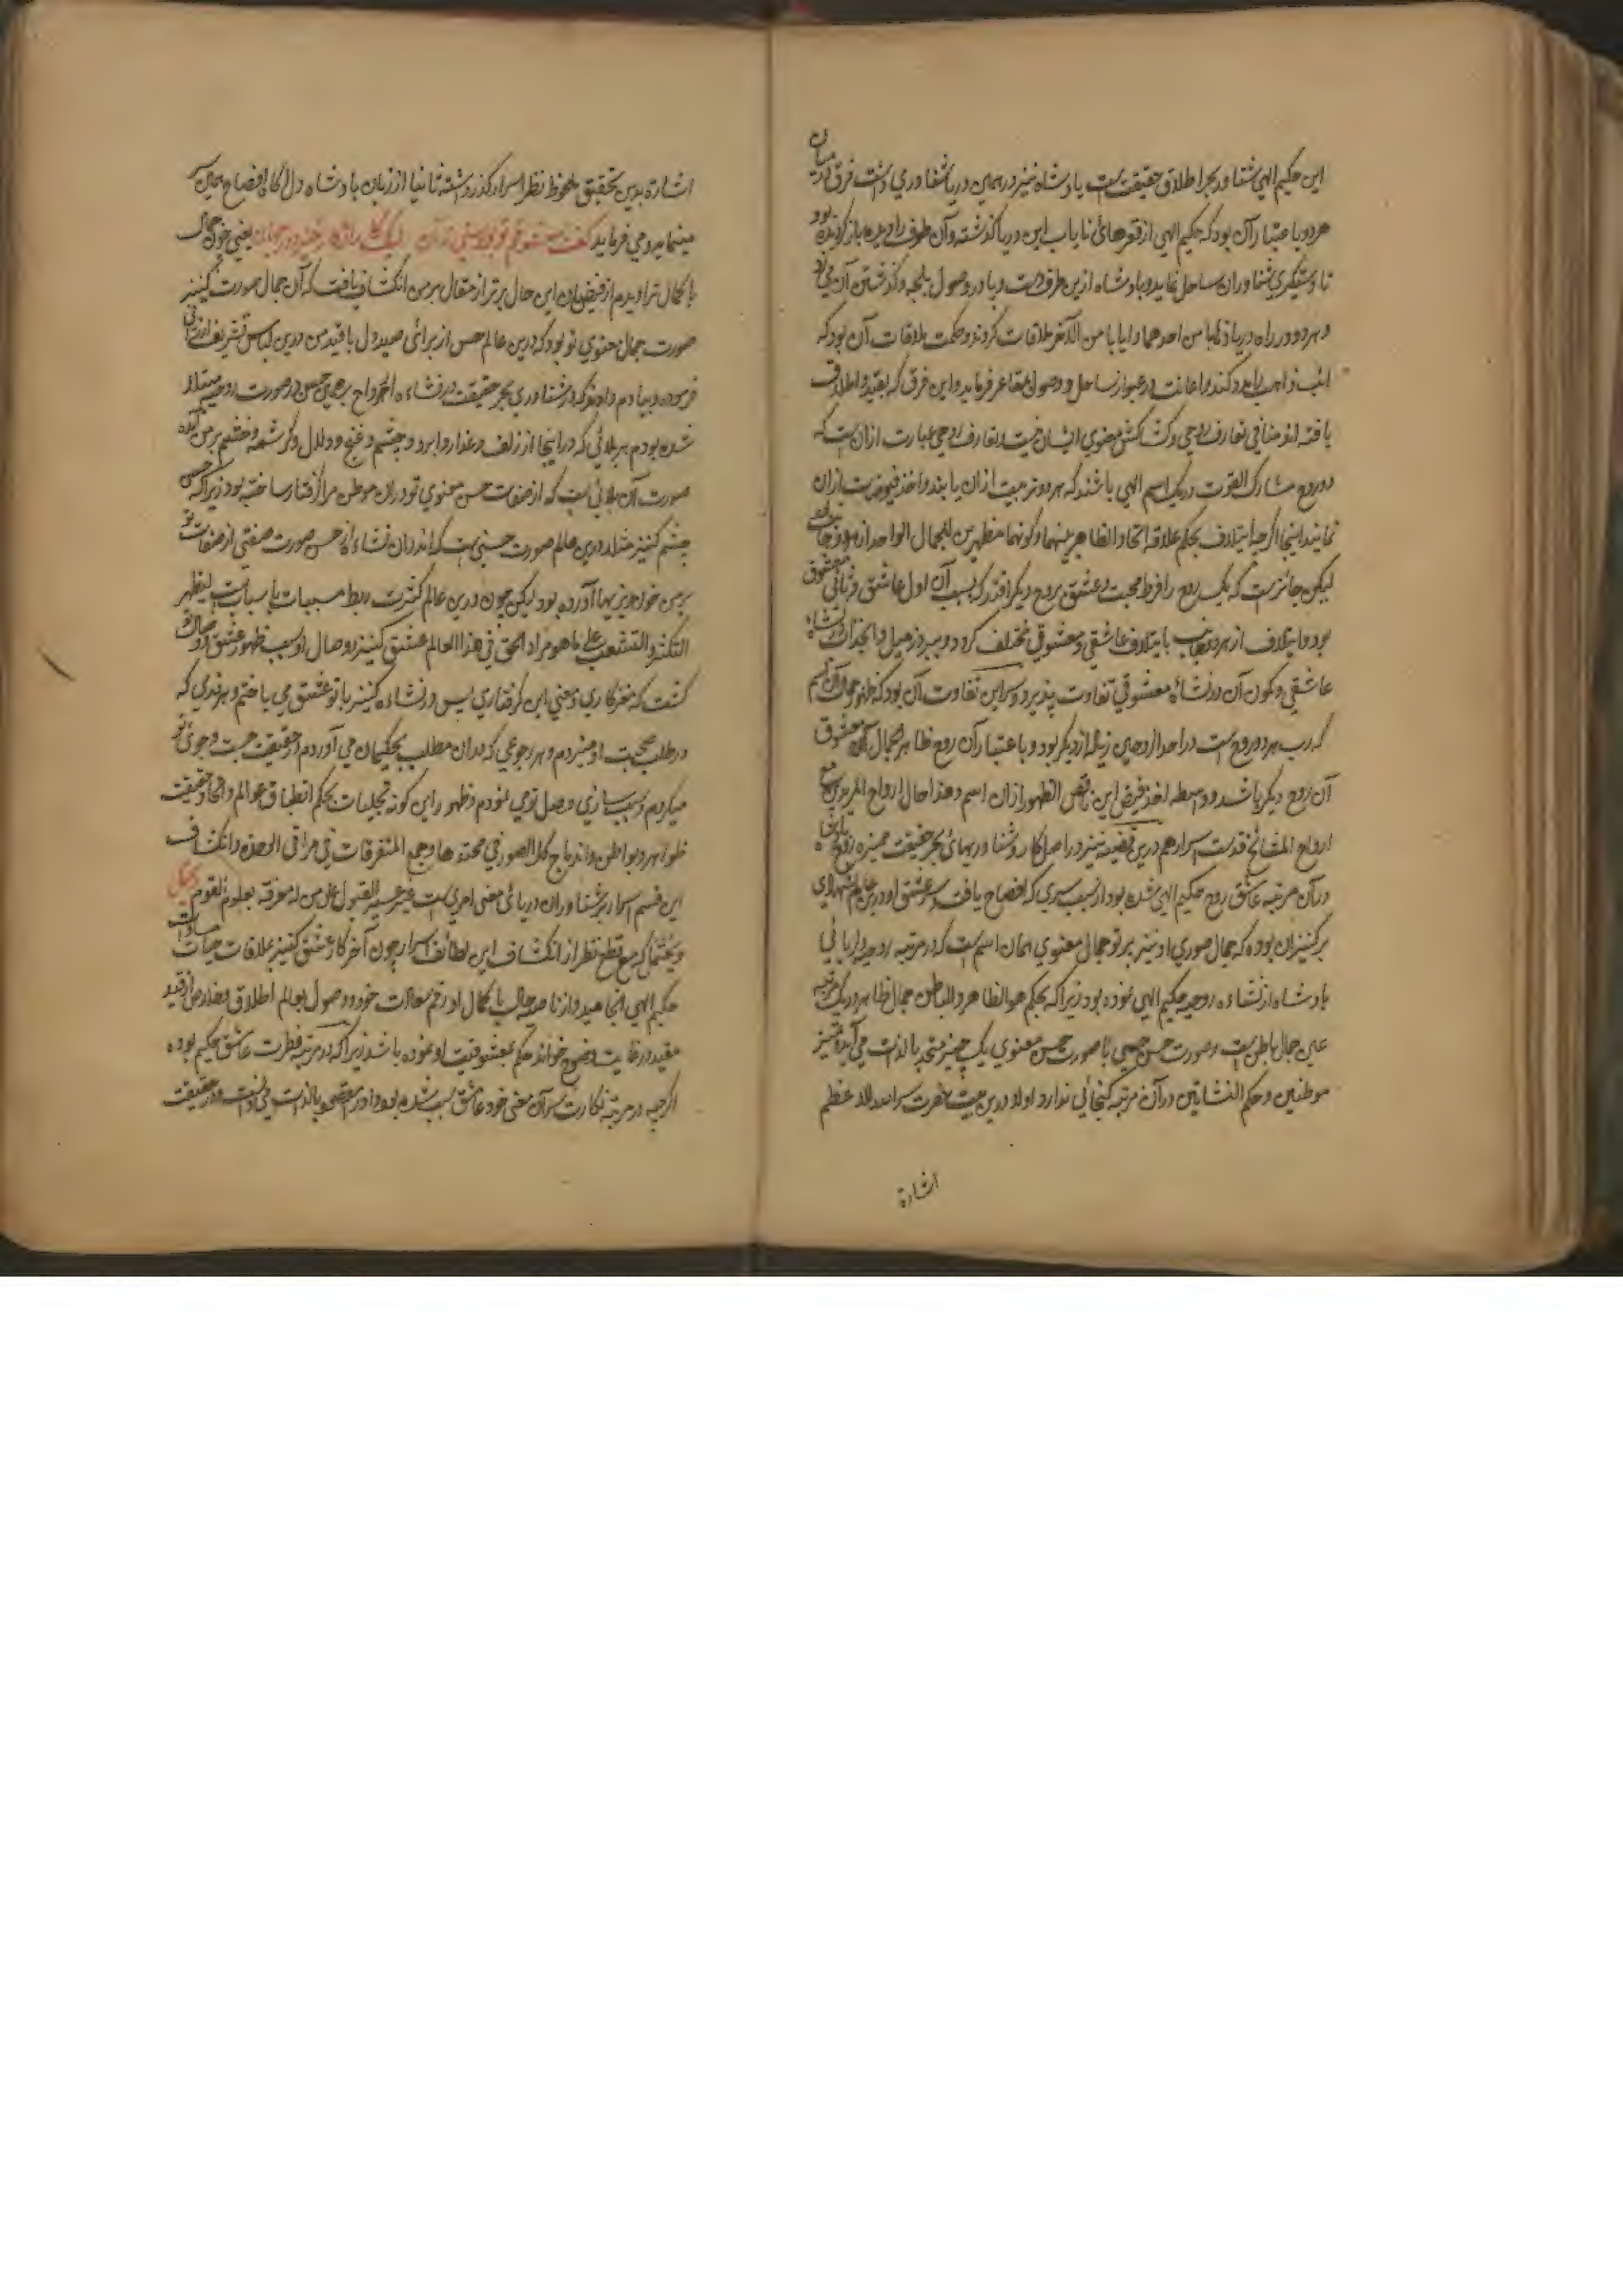 این حکیم الهی شناور بحر اطلاق حقیقت است یا دشاه نیز در همین دریا شناوری داشت فرق میان
هر دو باعتبار آن بود که حکیم الهی از قعرهای نایاب این دریا گذشته و آن طرف را دیده باز گردیده بود
تا دستگیری شناوران ساحل نماید و پادشاه ازین طرف است و پا در وصول بلجه و گذشتن آن می زد
و هر دو در راه دریا ذهابا من احدهما و ایابا من الآخر ملاقات کردند و حکمت ملاقات آن بود که
ائب ذاهب را مدد کند و اعانت در عبور از ساحل و وصول بقعر فرماید و این فرق که بقید و اطلاق
یافته لغو منافی تعارف روحی و کشاکش معنوی ایشان نیست و تعارف روحی عبارت ازان است که
دو روح مشارک القوت در یک اسم الهی باشند که هر دو تربیت ازان یابند و اخذ فیوضات ازان
نمایند اینجا اگرچه ایتلاف بحکم علاقه اتحاد الظاهر بینهما و کونهما مظهرین للجمال الواحد از هر دو جانب
لیکن جائز است که یک روح را فرط محبت و عشق بروح دیگر افتد که بسبب آن اول عاشق و ثانی معشوق
بود و ایتلاف از هر دو جانب بایتلاف عاشقی و معشوقی مختلف گردد و
عاشقی و کون آن در نشاة معشوقی تفاوت پذیرد و سر این تفاوت آن بود که ظهور جمال آن اسم
که رب هر دو روح است در احد از روحین زیاده از دیگر بود و باعتبار آن روح ظاهر الجمال معشوق
آن روح دیگر باشد و واسطه اخذ فیض این ناقص الظهور ازان اسم و هذا حال ارواح المریدین مع
ارواح المشائخ قدست اسرارهم درین قضیه نیز در اصل کار و شناوریهای بحر حقیقت
در آن مرتبه عاشق روح حکیم الهی شده بود از سبب سری که افصاح یافت و سر عشق او درین عالم شهادی
بر کنیزان بوده که جمال صوری او نیز پرتو جمال معنوی همان اسم است که در مرتبه روحیه
پادشاه از نشاءه روحیه حکیم الهی نموده بود زیرا که بحکم هو الظاهر و الباطن جمال ظاهر در یک مرتبه
عین جمال باطن است و صورت حسن جسمی با صورت حسن معنوی یک چیز متحد بالذات می آید تمییز
موطنین و حکم النشاتین در آن مرتبه گنجائی ندارد اولا درین بیت حضرت سر الله الاعظم
اشارة
اشارة بدین تحقیق ملحوظ نظر اسرار گذر داشته ثانیا از زبان پادشاه دل آگاه افصاح همین سر
مینماید و می فرماید گفت معشوقم تو بودستی نه آن لیک کار از کار خیزد در جهان یعنی چون جمال
با کمال ترا دیدم از فیضان این حال برتر از مقال بر من انکشاف یافت که آن جمال صورت کنیز
صورت جمال معنوی تو بود که درین عالم حس از برای صید دل با قید من درین لباس تشریف ارزانی
فرموده و بیادم داد که در شناوری بحر حقیقت در نشاءه الارواح بر همین حسن در صورت روحیه مبتلا
شده بودم هر بلائی که در اینجا از زلف و عذار و ابرو و چشم و غنج و دلال و کرشمه و خشم بر من آمده
صورت آن بلائی است که از صفات حسن معنوی تو در ان موطن مرا گرفتار ساخته بود زیرا که حسن
چشم کنیز مثلا درین عالم صورت حسنی است که اندران نشاءه از حسن صورت صفتی از صفات تو
بر من خونریزیها آورده بود لیکن چون درین عالم کثرت ربط مسببات باسباب است لیظهر
التکثر و التشعب علی ما هو مراد الحق فی هذا العالم عشق کنیز و وصال او سبب ظهور عشق و وصال تو
گشت که مغز کاری و معنی این گرفتاری پس در نشاءه کنیز با تو عشق می باختم و هر ندری که
در طلب صحبت او میبردم و هر رجوعی که بدان مطلب بحکیمان می آوردم در حقیقت جست و جوی تو
میکردم و سبب سازی وصل تو می نمودم و ظهور این گونه تجلیات بحکم انطباق عوالم و اتحاد حقیقت
ظواهر و بواطن و اندماج کل الصور فی محتدها و جمع المتفرقات فی مراقی الوحدة و انکشاف
این قسم اسرار بر شناوران دریای معنی امری است غیر عسیر القبول علی من له معرفة بعلوم القوم
و یحتمل که مع قطع نظر از انکشاف این لطائف اسرار چون آخر کار عشق کنیز بملاقات
حکیم الهی انجامید و از ناصیه حال با کمال او رقم سعادت خود و وصول بعالم اطلاق
مقید در غایت وضوح خواند حکم بمعشوقیت او نموده باشد زیرا که در مرتبه فطرت عاشق حکیم بوده
اگرچه در مرتبه نکارت سر آن معنی خود عاشق سبب شده بود و او را مقصود بالذات می دانست در حقیقت